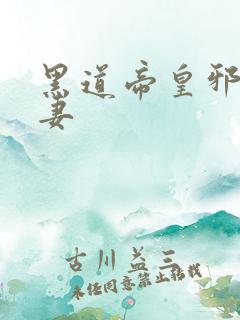 黑道帝皇邪
妻
古川益三
未经同意禁止转载